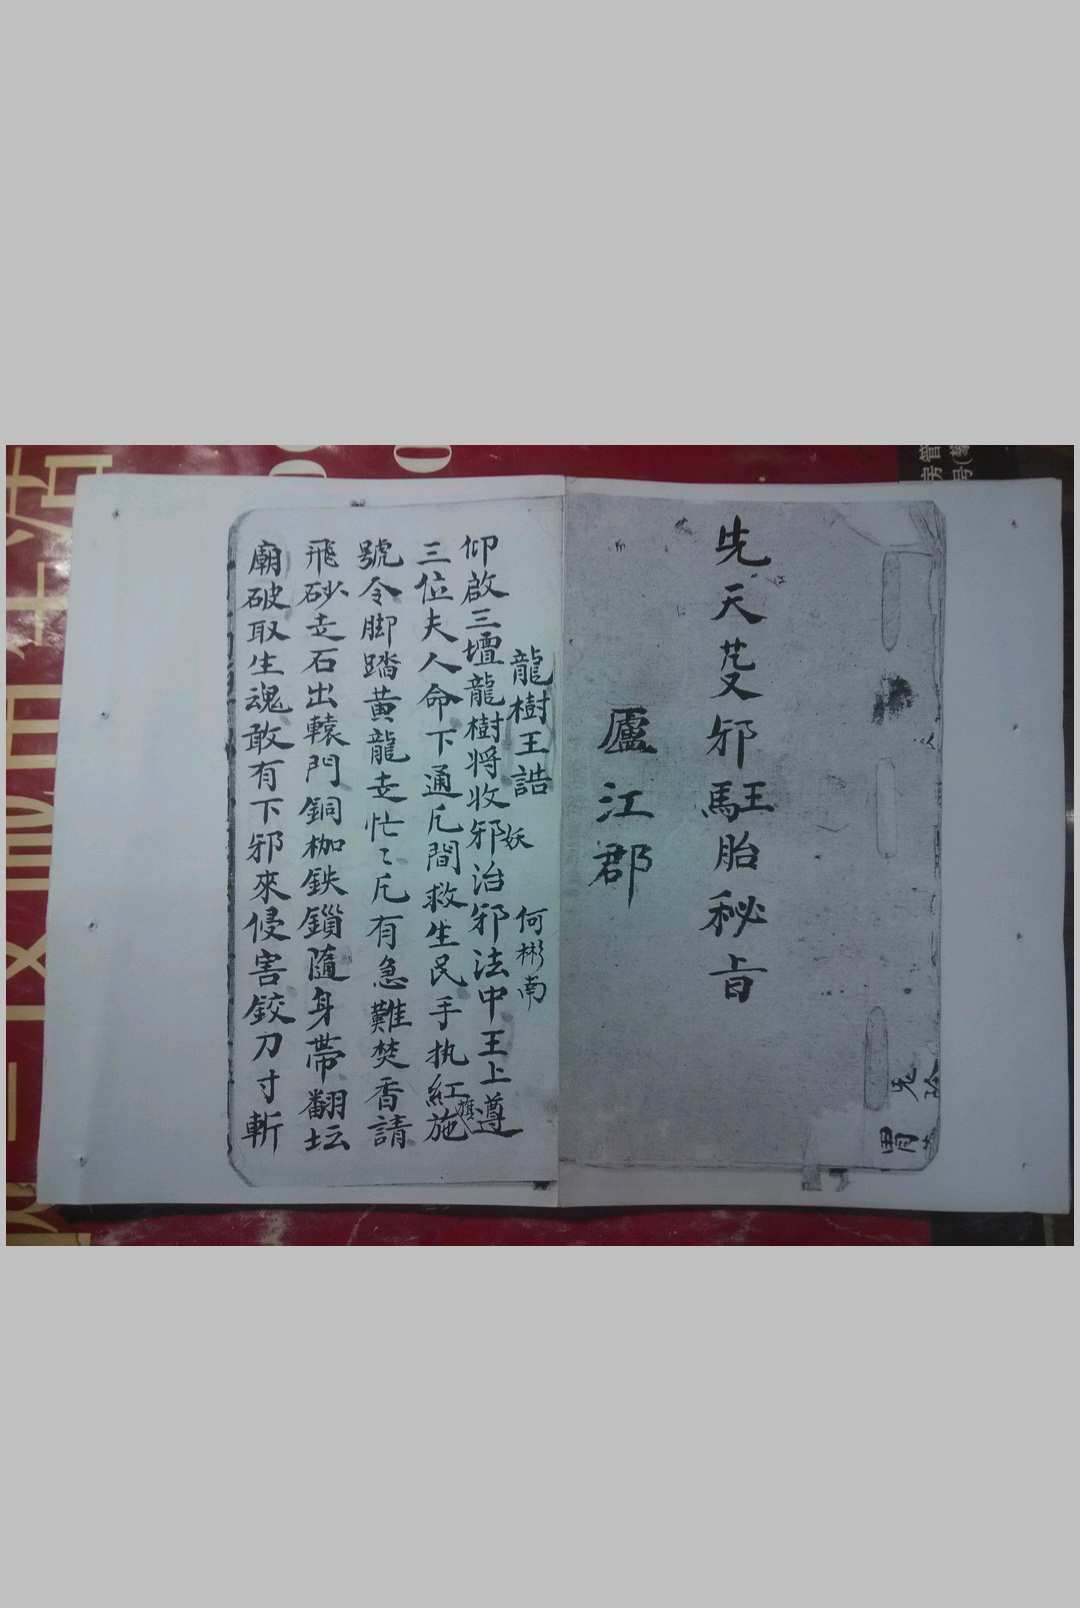 先天芟邪駐胎秘旨
廬江郡
龍樹王誥
何彬南
仰啟三壇龍樹將收邪治邪法中王上遵
妖
三位夫人命下通凡間救生民手执紅施
旗
號令脚踏黃龍走忙々凡有急難焚香請
飛砂走石出轅門銅枷鉄鎻隨身帶翻坛
廟破取生魂敢有下邪來侵害鉸刀寸斬